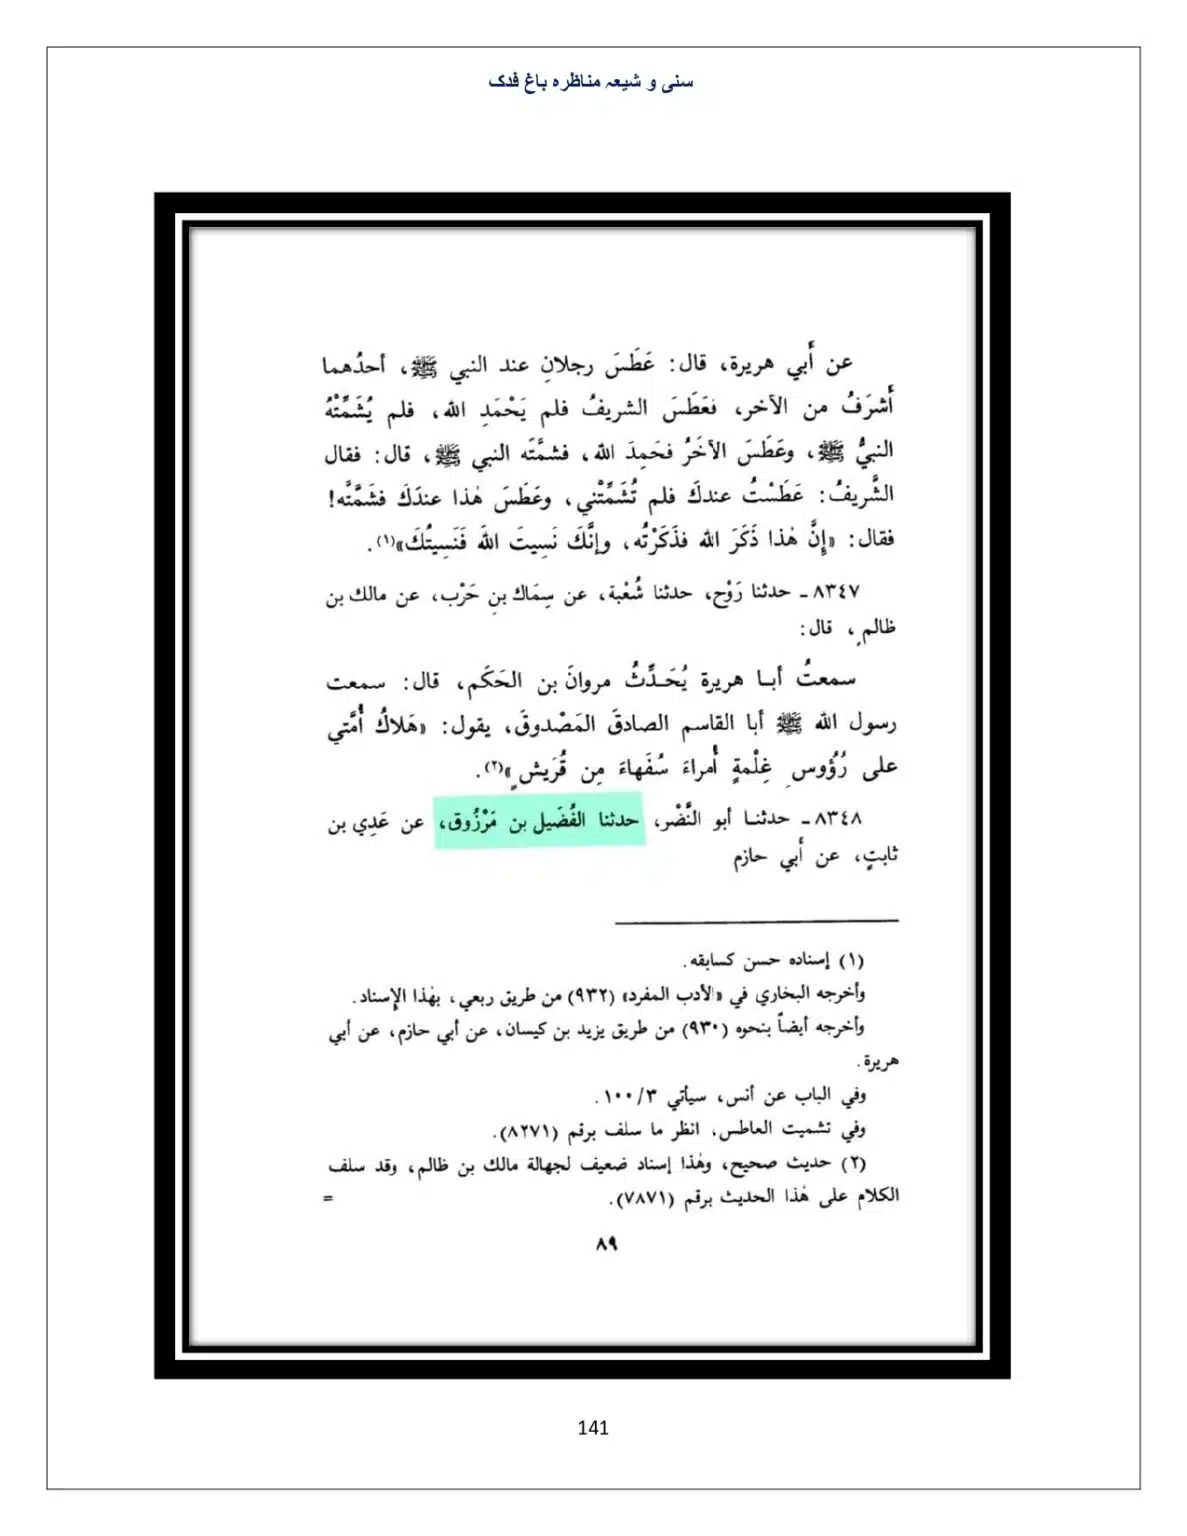 سنی و شیعہ مناظرہ باغ فدک
عن أَبي هريرة، قال: عَطَسَ رجلانِ عند النبي ﷺ، أحدُهما
أَشرَفُ من الآخر، فعَطَسَ الشريفُ فلم يَحْمَدِ الله، فلم يُشَمِّتْهُ
النبيُّ ﷺ، وعَطَسَ الآخَرُ فحَمِدَ الله، فشمَّتَه النبي ﷺ، قال: فقال
الشَّريفُ: عَطَسْتُ عندكَ فلم تُشَمِّتْني، وعَطَسَ هٰذا عندَكَ فشَمَّتَّه!
فقال: «إِنَّ هٰذا ذَكَرَ الله فذَكَرْتُه، وإنَّكَ نَسِيتَ اللهَ فَنَسِيتُكَ»(١).
٨٣٤٧ ـ حدثنا رَوْح، حدثنا شُعْبة، عن سِمَاك بنِ حَرْب، عن مالك بن
ظالمٍ، قال:
سمعتُ أبا هريرة يُحَدِّثُ مروانَ بن الحَكَم، قال: سمعت
رسول الله ﷺ أبا القاسم الصادقَ المَصْدوقَ، يقول: «هَلاكُ أُمَّتي
على رُؤوسِ غِلْمةٍ أُمراءَ سُفَهاءَ مِن قُرَيشٍ»(٢).
٨٣٤٨ ـ حدثنا أبو النَّضْر، حدثنا الفُضَيل بن مَرْزُوق، عن عَدِي بن
ثابتٍ، عن أَبي حازم
(١) إسناده حسن كسابقه.
وأخرجه البخاري في «الأدب المفرد» (٩٣٢) من طريق ربعي، بهٰذا الإسناد.
وأخرجه أيضاً بنحوه (٩٣٠) من طريق يزيد بن كيسان، عن أبي حازم، عن أبي
هريرة.
وفي الباب عن أنس، سيأتي ١٠٠/٣.
وفي تشميت العاطس، انظر ما سلف برقم (٨٢٧١).
(٢) حديث صحيح، وهٰذا إسناد ضعيف لجهالة مالك بن ظالم، وقد سلف
الكلام على هٰذا الحديث برقم (٧٨٧١). =
٨٩
141